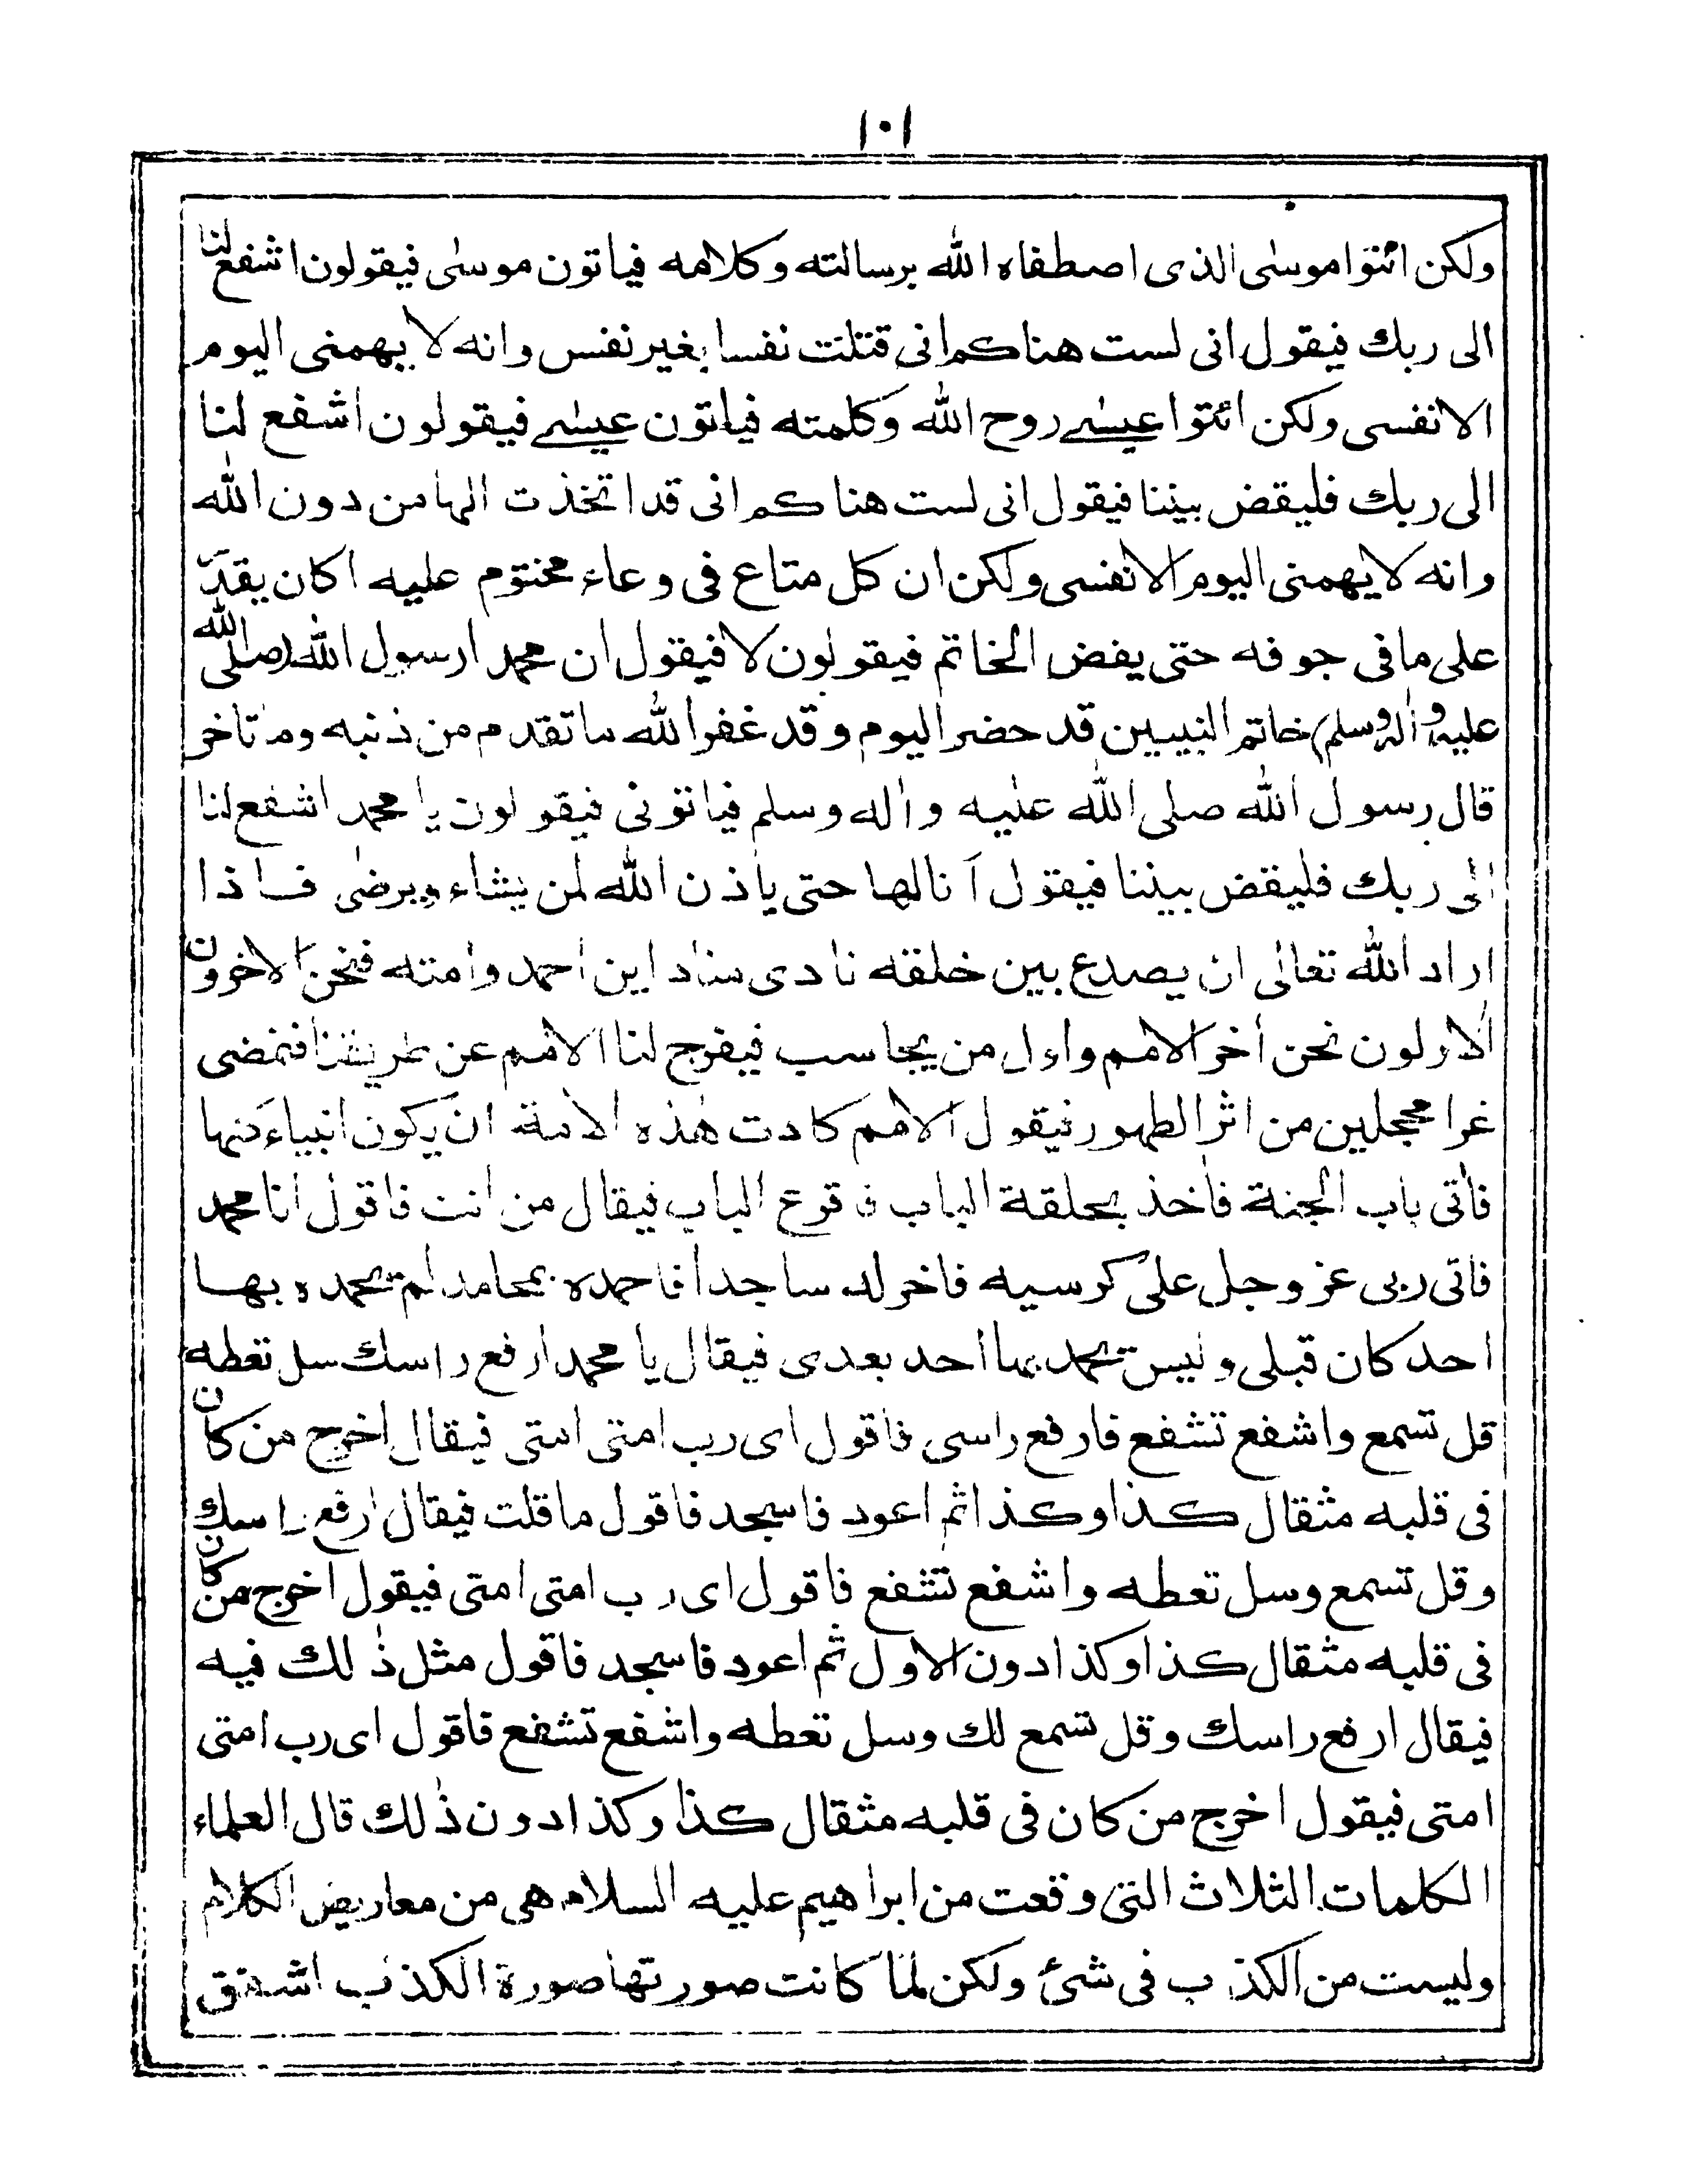 ١٠١
ولكن ائتوا موسى الذى اصطفاه الله برسالته وكلامه فياتون موسى فيقولون اشفع لنا
الى ربك فيقول انى لست هناكم انى قتلت نفسا بغير نفس وانه لا يهمنى اليوم
الا نفسى ولكن ائتوا عيسے روح الله وكلمته فياتون عيسے فيقولون اشفع لنا
الى ربك فليقض بيننا فيقول انى لست هناكم انى قد اتخذت الها من دون الله
وانه لا يهمنى اليوم الا نفسى ولكن ان كل متاع فى وعاء مختوم عليه اكان يقدّ
على ما فى جوفه حتى يفض الخاتم فيقولون لا فيقول ان محمد ارسول الله (صلى الله
عليه واٰله وسلم) خاتم النبيين قد حضر اليوم وقد غفر الله ما تقدم من ذنبه وما تاخر
قال رسول الله صلى الله عليه واٰله وسلم فياتونى فيقولون يا محمد اشفع لنا
الى ربك فليقض بيننا فيقول آنالها حتى ياذن الله لمن يشاء ويرضى فاذا
اراد الله تعالى ان يصدع بين خلقه نادى مناد اين احمد وامته فنحن الاخرون
الاولون نحن اٰخر الامم واول من يحاسب فيفرج لنا الامم عن طريقنا فنمضى
غرا محجلين من اثر الطهور فيقول الامم كادت هٰذه الامة ان يكون انبياء منها
فاٰتى باب الجنة فاٰخذ بحلقة الباب فاقرع الباب فيقال من انت فاقول انا محمد
فاٰتى ربى عز وجل على كرسيه فاخر له ساجدا فاحمده بمحامد لم يحمده بها
احد كان قبلى وليس يحمد بها احد بعدى فيقال يا محمد ارفع راسك سل تعطه
قل تسمع واشفع تشفع فارفع راسى فاقول اى رب امتى امتى فيقال اخرج من كان
فى قلبه مثقال كذا وكذا ثم اعود فاسجد فاقول ما قلت فيقال ارفع راسك
وقل تسمع وسل تعطه واشفع تشفع فاقول اى رب امتى امتى فيقول اخرج من كان
فى قلبه مثقال كذا وكذا دون الاول ثم اعود فاسجد فاقول مثل ذٰلك فيه
فيقال ارفع راسك وقل تسمع لك وسل تعطه واشفع تشفع فاقول اى رب امتى
امتى فيقول اخرج من كان فى قلبه مثقال كذا وكذا دون ذٰلك قال العلماء
الكلمات الثلاث التى وقعت من ابراهيم عليه السلام هى من معاريض الكلام
وليست من الكذب فى شئ ولكن لما كانت صورتها صورة الكذب اشفق